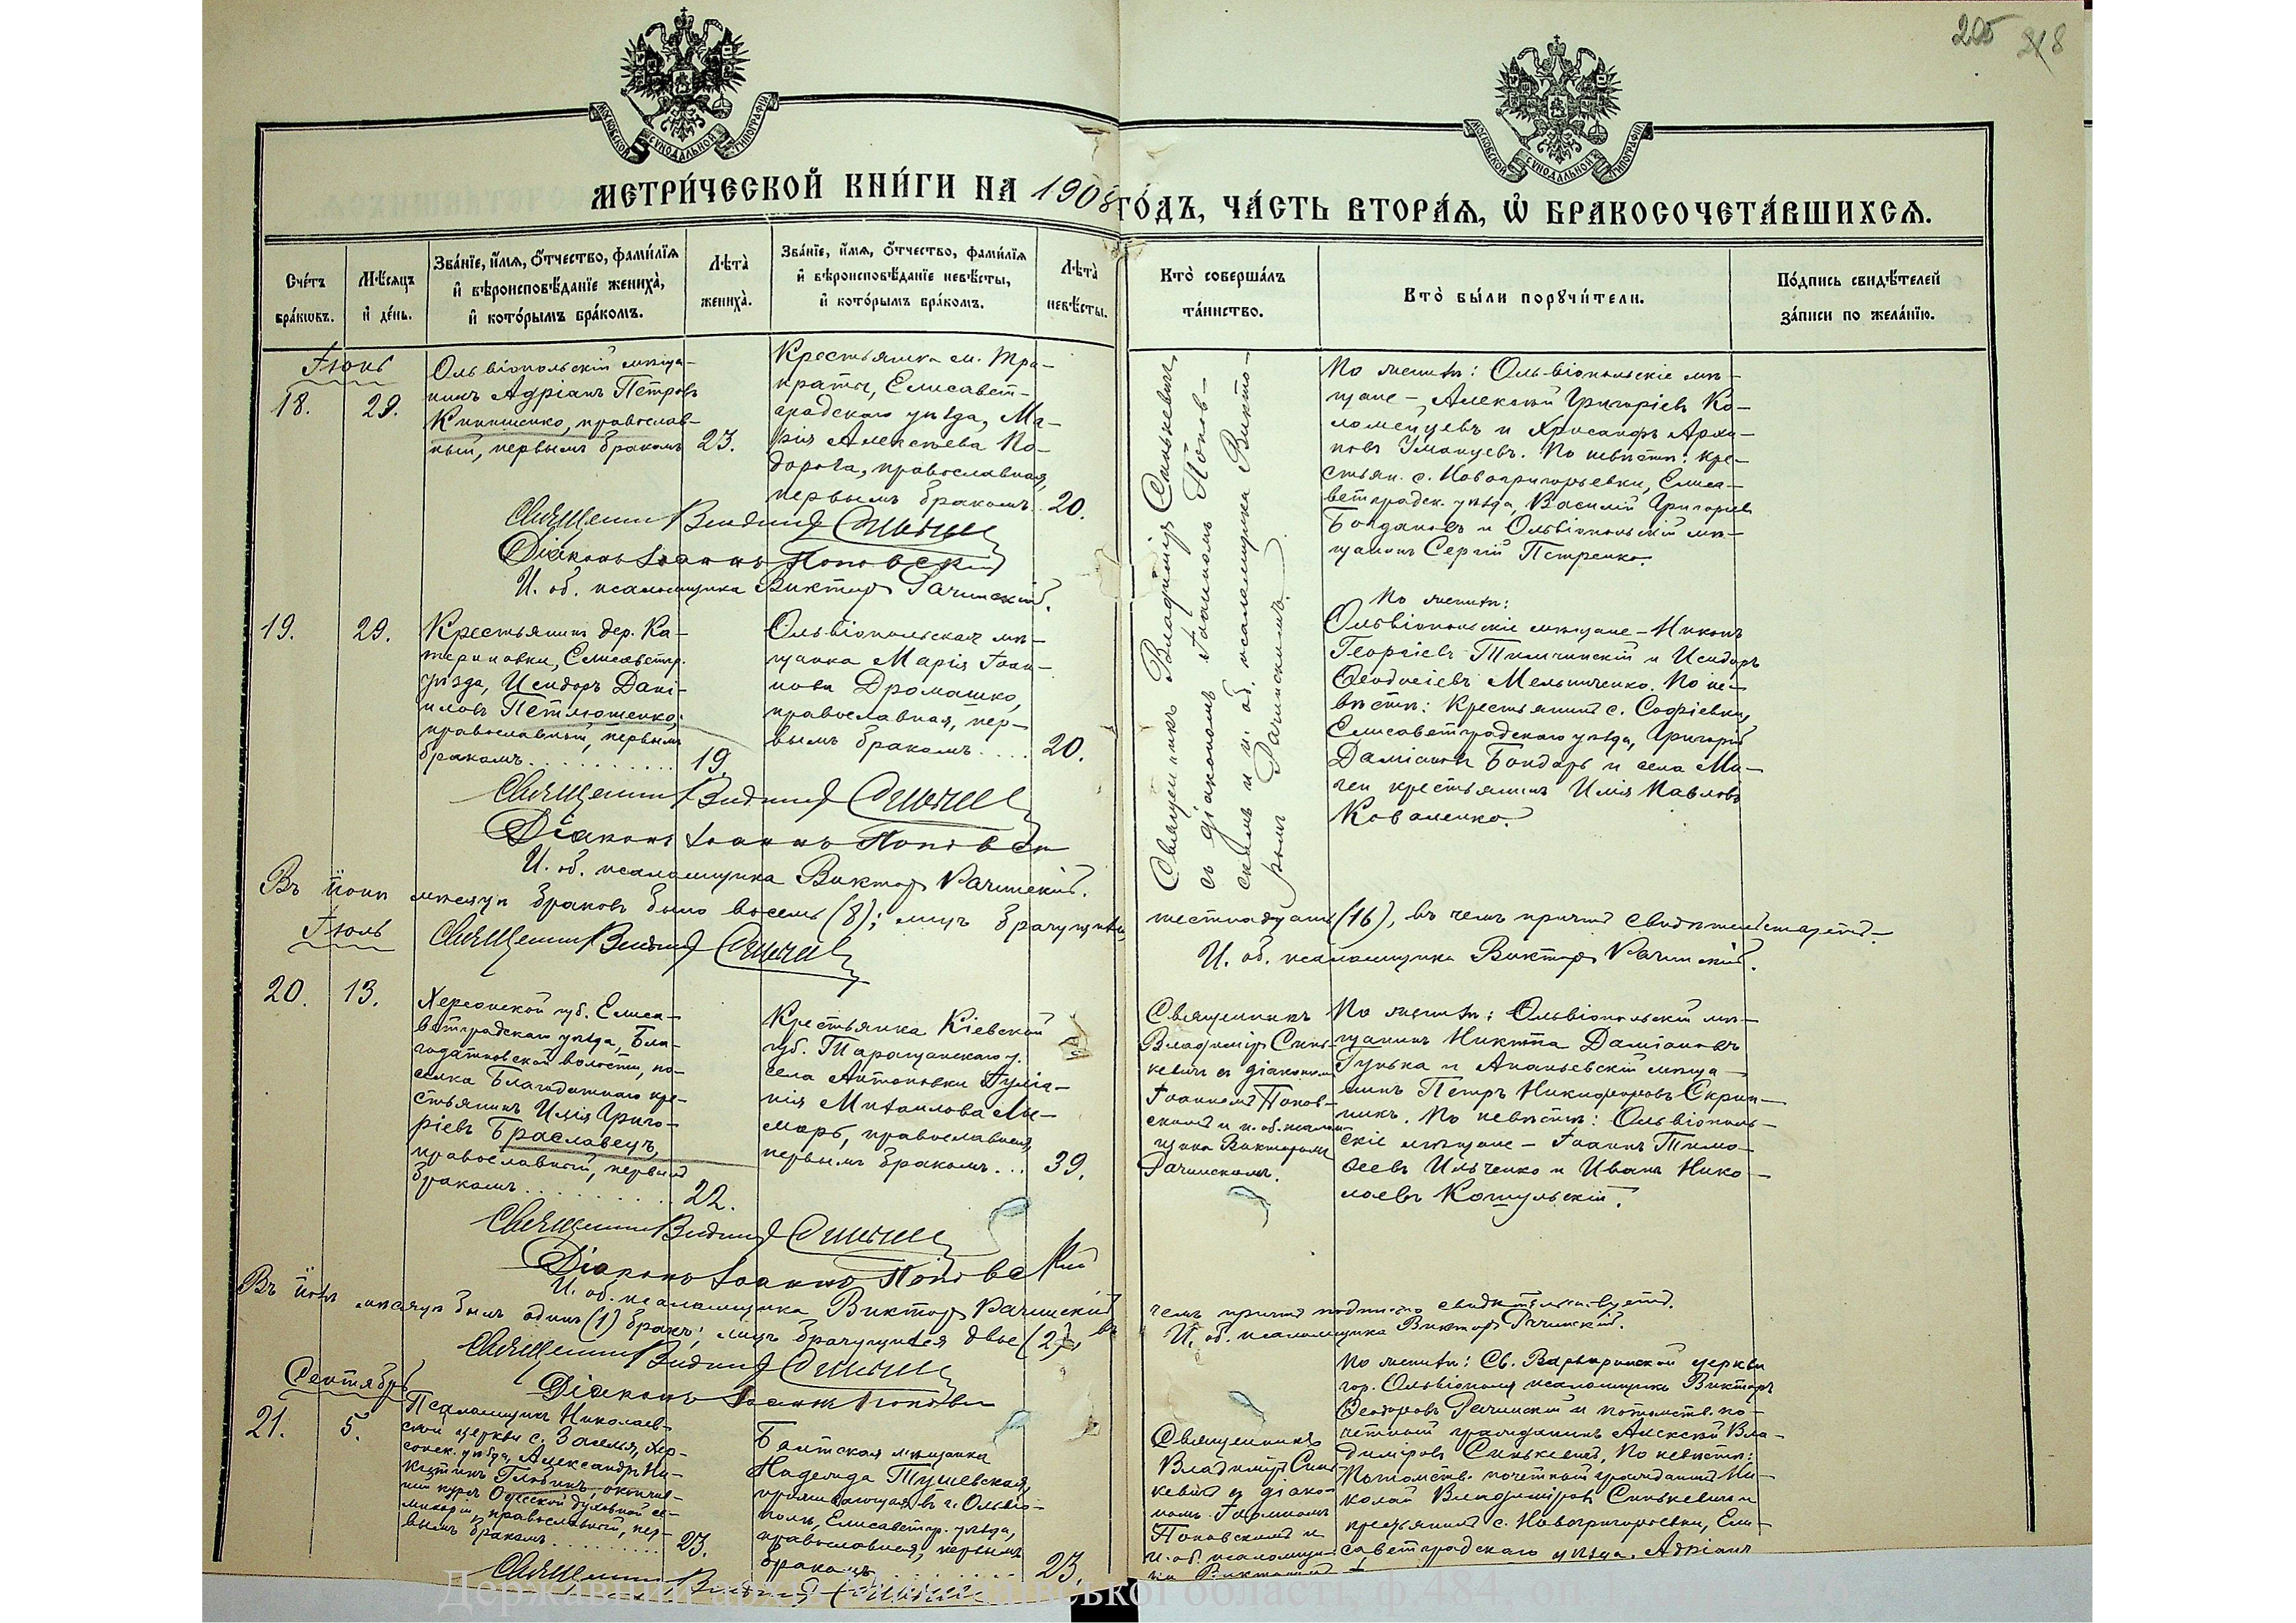 205 218
МОСКОВСКОЙ СѴНОДАЛЬНОЙ ТИПОГРАФІИ
МОСКОВСКОЙ СѴНОДАЛЬНОЙ ТИПОГРАФІИ
МЕТРИ́ЧЕСКОЙ КНИ́ГИ НА 1908 ГО́ДЪ, ЧА́СТЬ ВТОРА́Ѧ, Ѽ БРАКОСОЧЕТА́ВШИХСѦ.
Сче́тъ
бра́кѡвъ.
Мѣ́сѧцъ
и҆ де́нь.
Зва́нїе, и҆́мѧ, ѻ҆́тчество, фами́лїѧ
и҆ вѣроисповѣ́данїе жениха̀,
и҆ кото́рымъ бра́комъ.
Лѣта̀
жениха̀.
Зва́нїе, и҆́мѧ, ѻ҆́тчество, фами́лїѧ
и҆ вѣроисповѣ́данїе невѣ́сты,
и҆ кото́рымъ бра́комъ.
Лѣта̀
невѣ́сты.
Кто̀ соверша́лъ
та́инство.
Кто̀ бы́ли порꙋчи́тели.
По́дпись свидѣ́телей
за́писи по жела́нїю.
Іюнь
18. 29.
Ольвіопольскій мѣща-
нинъ Адріанъ Петровъ
православ-
ный, первымъ бракомъ 23.
Крестьянка м. Тра-
краты, Елисавет-
градскаго уѣзда, Ма-
рія Алексѣева По-
дорога, православная,
первымъ бракомъ. 20.
Священникъ Владиміръ Синькевичъ
съ діакономъ Іоанномъ Попов-
скимъ и и. об. псаломщика Викто-
ромъ Рачинскимъ.
По женихѣ: Ольвіопольскіе мѣ-
щане – Алексѣй Григоріевъ Ко-
ломейцевъ и Хрисанфъ Архи-
повъ Уманцевъ. По невѣстѣ: кре-
стьян. с. Новогригорьевки, Елиса-
ветградск. уѣзда, Василій Григорьев
Богдановъ и Ольвіопольскій мѣ-
щанинъ Сергій Петренко.
Священникъ Владиміръ Синькевичъ
Діаконъ Іоаннъ Поповскій
И. об. псаломщика Викторъ Рачинскій.
19. 29.
Крестьянинъ дер. Ка-
териновки, Елисаветгр.
уѣзда, Исидоръ Дані-
иловъ Петлюшенко,
православный, первымъ
бракомъ. 19.
Ольвіопольская мѣ-
щанка Марія Іоан-
нова Дромашко,
православная, пер-
вымъ бракомъ. 20.
По женихѣ:
Ольвіопольскіе мѣщане – Никонъ
Георгіевъ Тимчинскій и Исидоръ
Ѳеодосіевъ Мельниченко. По не-
вѣстѣ: Крестьянинъ с. Софіевки,
Елисаветградскаго уѣзда, Григорій
Даміановъ Бондарь и села Ми-
геи крестьянинъ Илія Павловъ
Коваленко.
Священникъ Владиміръ Синькевичъ
Діаконъ Іоаннъ Поповскій
И. об. псаломщика Викторъ Рачинскій.
Въ іюнѣ мѣсяцѣ браковъ было восемь (8); лицъ брачущихся шестнадцать (16), въ чемъ причтъ свидѣтельствуетъ.
Священникъ Владиміръ Синькевичъ
И. об. псаломщика Викторъ Рачинскій.
Іюль
20. 13.
Херсонской губ. Елиса-
ветградскаго уѣзда, Бла-
годатновской волости, по-
селка Благодатнаго кре-
стьянинъ Илія Григо-
ріевъ Браславецъ,
православный, первымъ
бракомъ. 22.
Крестьянка Кіевской
губ. Таращанскаго у.
села Антоновки Іуліа-
нія Михаилова
православная,
первымъ бракомъ... 39.
Священникъ
Владиміръ Синь-
кевичъ съ діакономъ
Іоанномъ Попов-
скимъ и и. об. псалом-
щика Викторомъ
Рачинскимъ.
По женихѣ: Ольвіопольскій мѣ-
щанинъ Никита Даміановъ
Гунька и Ананьевскій мѣща-
нинъ Петръ Никифоровъ Скрип-
никъ. По невѣстѣ: Ольвіополь-
скіе мѣщане – Іоаннъ Тимо-
ѳеевъ Ильченко и Иванъ Нико-
лаевъ Кошульскій.
Священникъ Владиміръ Синькевичъ
Діаконъ Іоаннъ Поповскій
И. об. псаломщика Викторъ Рачинскій
Въ іюлѣ мѣсяцѣ былъ одинъ (1) бракъ; лицъ брачущихся двое (2), въ чемъ причтъ подписью свидѣтельствуетъ.
И. об. псаломщика Викторъ Рачинскій.
Священникъ Владиміръ Синькевичъ
Діаконъ Іоаннъ Поповскій
Сентябрь
21. 5.
Псаломщикъ Николаев-
ской церкви с. Заселья, Хер-
сонск. уѣзда, Александръ Ни-
китинъ Глобинъ, окончив-
шій курсъ Одесской духовной се-
минаріи, православный, пер-
вымъ бракомъ. 23.
Балтская мѣщанка
Надежда Тушевская,
проживающая въ г. Ольвіо-
полѣ, Елисаветгр. уѣзда,
православная, первымъ
бракомъ. 23.
Священникъ
Владиміръ Синь-
кевичъ съ діако-
номъ Іоанномъ
Поповскимъ и
и. об. псаломщи-
ка Викторомъ
По женихѣ: Св. Варваринской церкви
гор. Ольвіополя псаломщикъ Викторъ
Ѳеодоровъ Рачинскій и потомств. по-
четный гражданинъ Алексѣй Вла-
диміровъ Синькевичъ. По невѣстѣ:
Потомств. почетный гражданинъ Ни-
колай Владиміровъ Синькевичъ и
крестьянинъ с. Новогригорьевки, Ели-
саветградскаго уѣзда, Адріанъ
Священникъ Владиміръ Синькевичъ
Державний архів Миколаївської області ф.484